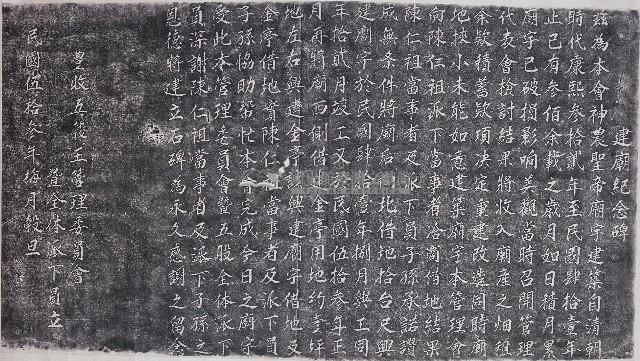 建廟紀念碑
茲為本會神農聖帝廟宇建築自清朝
時代康熙參拾貳年至民國肆拾壹年
止已有參佰余載之歲月如日積月累
廟宇已破損影响美觀當時召開管理
代表會檢討結果將收入廟產之畑租
余款積蓄款項決定重建改造同時廟
地挾小未能如意建築廟宇本管理會
向陳仁祖派下當事者洽商借地結果
陳仁祖當事者及派下員子孫承諾讚
成無條件將廟后 北借地拾台尺興
建廟宇於民國肆拾壹年捌月興工同
年拾貳月竣工又於民國伍拾參年正
月再將廟両側借建金亭用地約壹坪
地左右興建金亭 興建廟宇借地及
金亭借地實陳仁祖當事者及派下員
子孫協助幫忙本會完成今日之廟宇
受此本管理委員會暨五股全体派下
員深謝陳仁祖當事者及派下子孫之
恩德將建立石碑為永久感謝之留念
豊收五股王管理委員會
暨全体派下員立
民國伍拾參年梅月穀旦